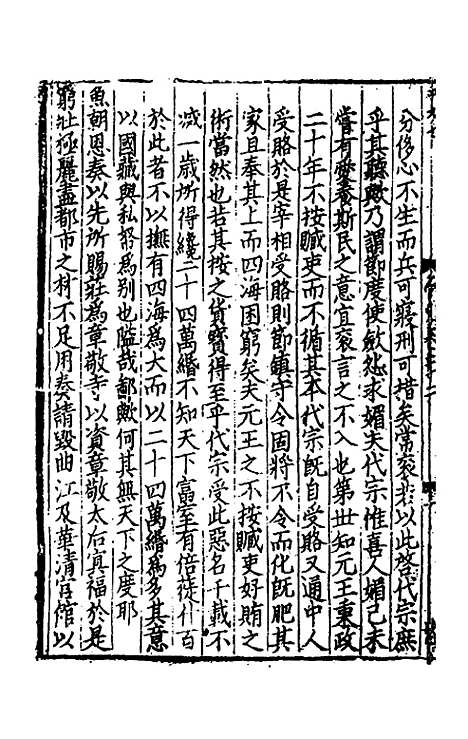 分侈心不生而兵可寢刑可措矣常袞若以此啓代宗庶
乎其聽歟乃謂節度使斂怨求媚夫代宗惟喜人媚己未
嘗有愛養斯民之意宜袞言之不入也第丗知元王秉政
二十年不按贓吏而不循其本代宗旣自受賂又通中人
受賂於是宰相受賂則節鎮守令固將不令而化旣肥其
家且奉其上而四海困窮矣夫元王之不按贓吏好賄之
術當然也若其按之貨寳得至乎代宗受此惡名千載不
滅一歲所得纔二十四萬緡不知天下富室有倍徙什百
於此者不以撫有四海爲大而以二十四萬緡爲多其意
以國藏與私帑爲别也隘哉鄙歟何其無天下之度耶
魚朝恩奏以先所賜莊爲章敬寺以資章敬太后冥福於是
窮壯極麗盡都市之材不足用奏請毀曲江及華清宮館以